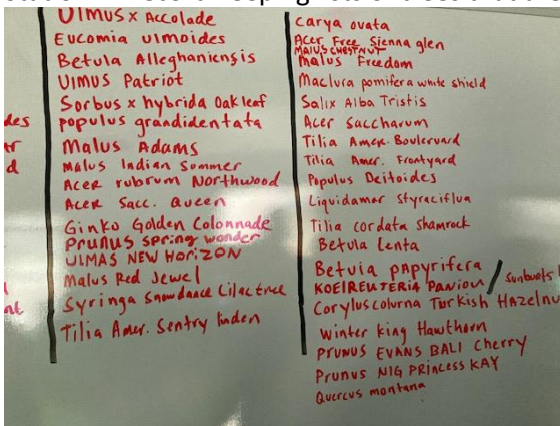 des
d
nt
Ulmus x Accolade
Eucomia ulmoides
Betula Alleghaniensis
Ulmus Patriot
Sorbus x hybrida Oakleaf
populus grandidentata
Malus Adams
malus Indian Summer
Acer rubrum Northwood
Acer Sacc. Queen
Ginko Golden Colonnade
Prunus spring wonder
UlMAS NEW HORIZON
Malus Red Jewel
Syringa Snowdance Lilac tree
Tilia Amer. Sentry linden
Carya ovata
Acer Free Sienna glen
MALUS CHESTNUT
Malus Freedom
Maclura pomifera white shield
Salix Alba Tristis
Acer Saccharum
Tilia Amer. Boulervard
Tilia Amer. Frontyard
Populus Deltoides
Liquidamar Styraciflua
Tilia cordata shamrock
Betula lenta
Betula papyrifera
KOELREUTERIA PANICU / Sunbursts
Corylus colurna Turkish Hazelnu
Winter king Hawthorn
PRUNUS EVANS BALI Cherry
PRUNUS NIG PRINCESS KAY
Quercus montana